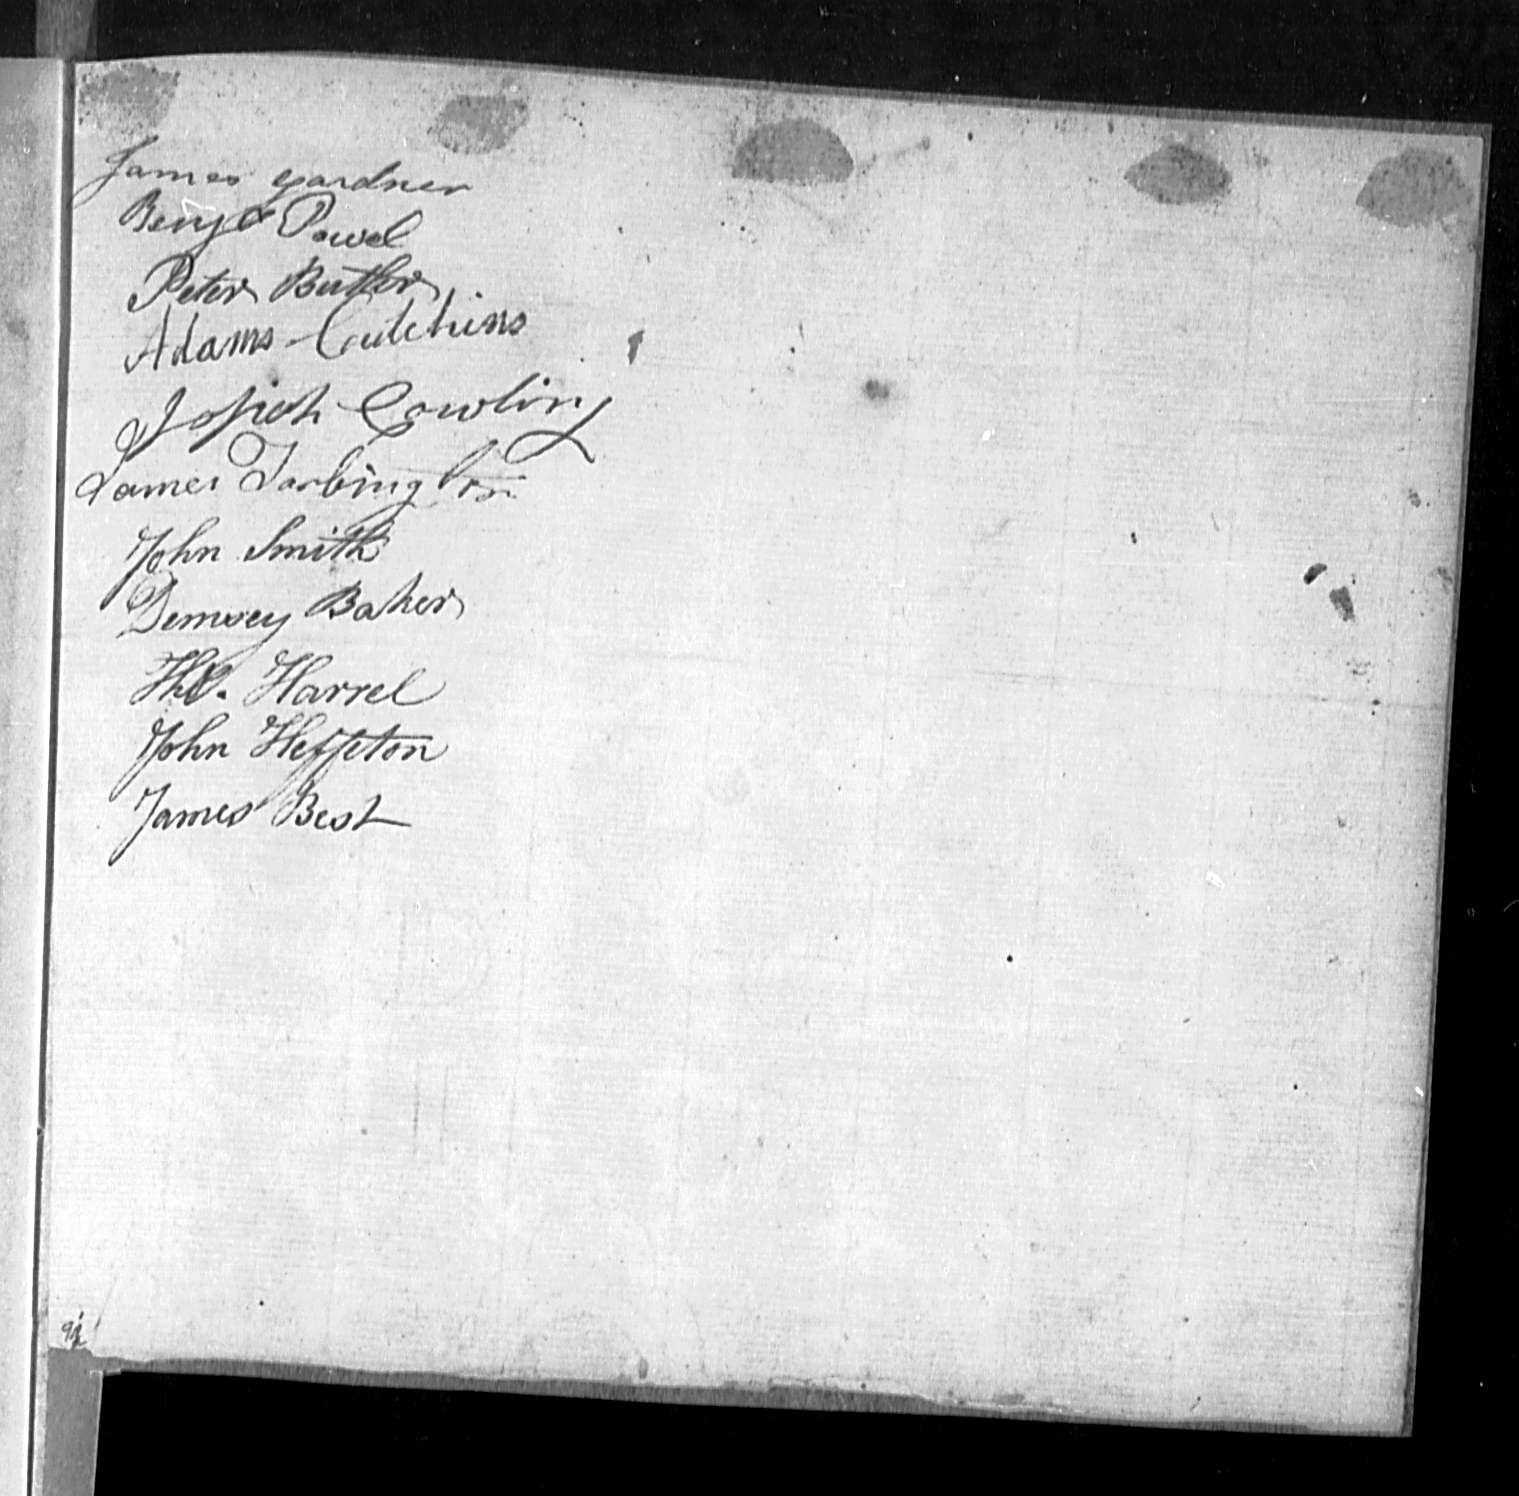 James Gardner
Benja Powel
Peter Butler
Adams Cutchins
Josiah Cowling
James Tarbington
John Smith
Demsey Baker
Tho. Harrel
John Heffeton
James Best